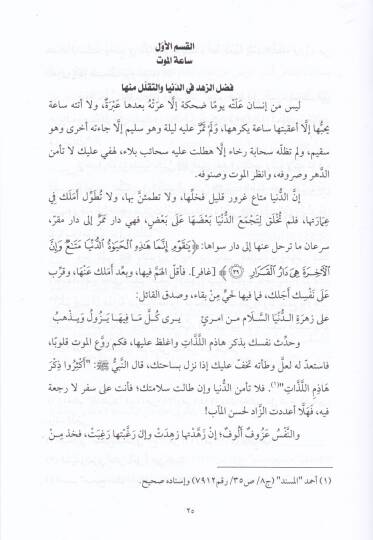 القسم الأوّل
ساعة الموت
فضل الزهد في الدنيا والتقلّل منها
ليس من إنسان علَته يومًا ضحكة إلَّا عرَتهُ بعدها عَبْرَةٌ، ولا أتته ساعة
يحبُّها إلَّا أعقبتها ساعة يكرهها، ولَمْ تَمُرَّ عليه ليلة وهو سليم إلَّا جاءته أخرى وهو
سقيم، ولم تظلّه سحابة رخاء إلَّا هطلت عليه سحائب بلاء، لهفي عليك لا تأمن
الدَّهر وصروفه، وانظر الموت وصنوفه.
إنَّ الدُّنيا متاع غرور قليل فخلِّها، ولا تطمئنَّ بها، ولا تُطَوِّل أمَلَك في
عِمَارَتها، فلم تُخْلَق لِتَجْمَعَ الدُّنْيَا بَعْضَهَا عَلَى بَعْضٍ، فهي دار ممرّ إلى دار مقرّ،
سرعان ما ترحل عنها إلى دار سواها: ﴿يَٰقَوْمِ إِنَّمَا هَٰذِهِ الْحَيَوٰةُ الدُّنْيَا مَتَٰعٌ وَإِنَّ
الْآخِرَةَ هِيَ دَارُ الْقَرَارِ ٣٩﴾ [غافر]. فأقلَّ الهمَّ فيها، وبعُد أَمَلك عَنْهَا، وقرِّب
عَلَى نَفْسِكَ أجَلك، فما فيها لحيٍّ مِنْ بقاء، وصدق القائل:
على زهرَةِ الـدُّنْيَا السَّلام من امـرئٍ يـرى كُـلَّ مَـا فيهَـا يَـزُولُ ويَـذْهبُ
وحدِّث نفسك بذكر هاذم اللَّذَّاتِ واغلظ عليها، فكم روَّع الموت قلوبًا،
فاستعدّ له لعلَّ وطأته تخفّ عليك إذا نزل بساحتك، قال النَّبيُّ ﷺ: "أَكْثِرُوا ذِكْرَ
هَاذِمِ اللَّذَّاتِ"(١). فلا تأمنن الدُّنيا وإن طالت سلامتك؛ فأنت على سفر لا رجعة
فيه، فَهَلَّا أعددت الزَّاد لحسن المآب!
والنَّفْسُ عَزُوفٌ أَلُوفٌ؛ إنْ زَهَّدْتها زَهِدَتْ وإن رَغَّبْتها رَغِبَتْ، فخذ مِـنْ
(١) أحمد "المسند" (ج٨/ ص٣٥/ رقم٧٩١٢) وإسناده صحيح.
٢٥